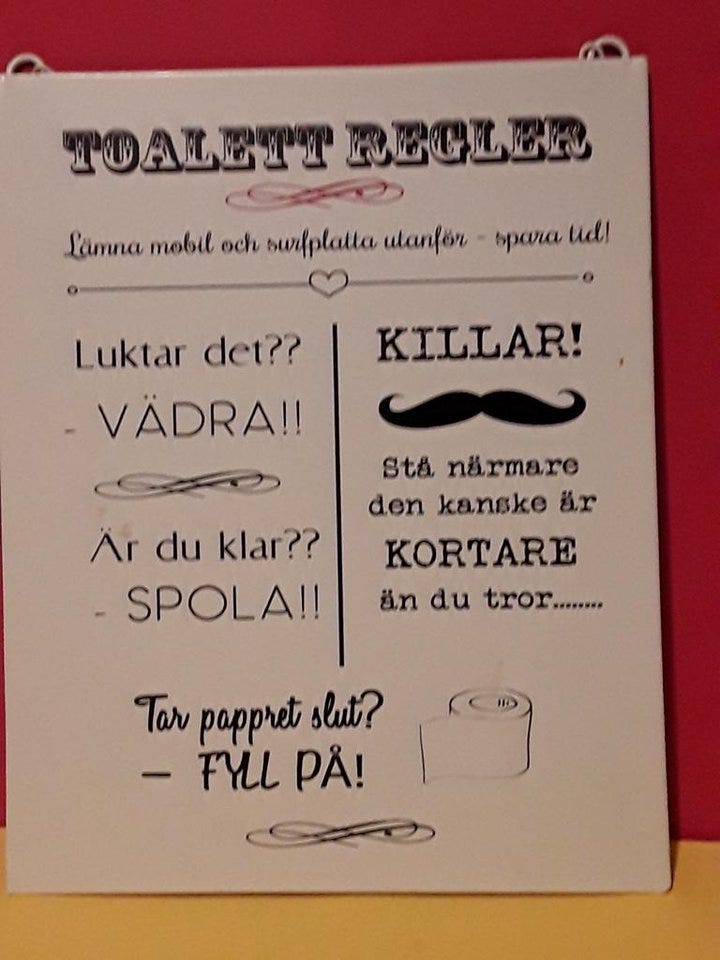 TOALETT REGLER
Lämna mobil och surfplatta utanför - spara tid!
Luktar det??
- VÄDRA!!
Är du klar??
- SPOLA!!
KILLAR!
Stå närmare
den kanske är
KORTARE
än du tror........
Tar pappret slut?
- FYLL PÅ!